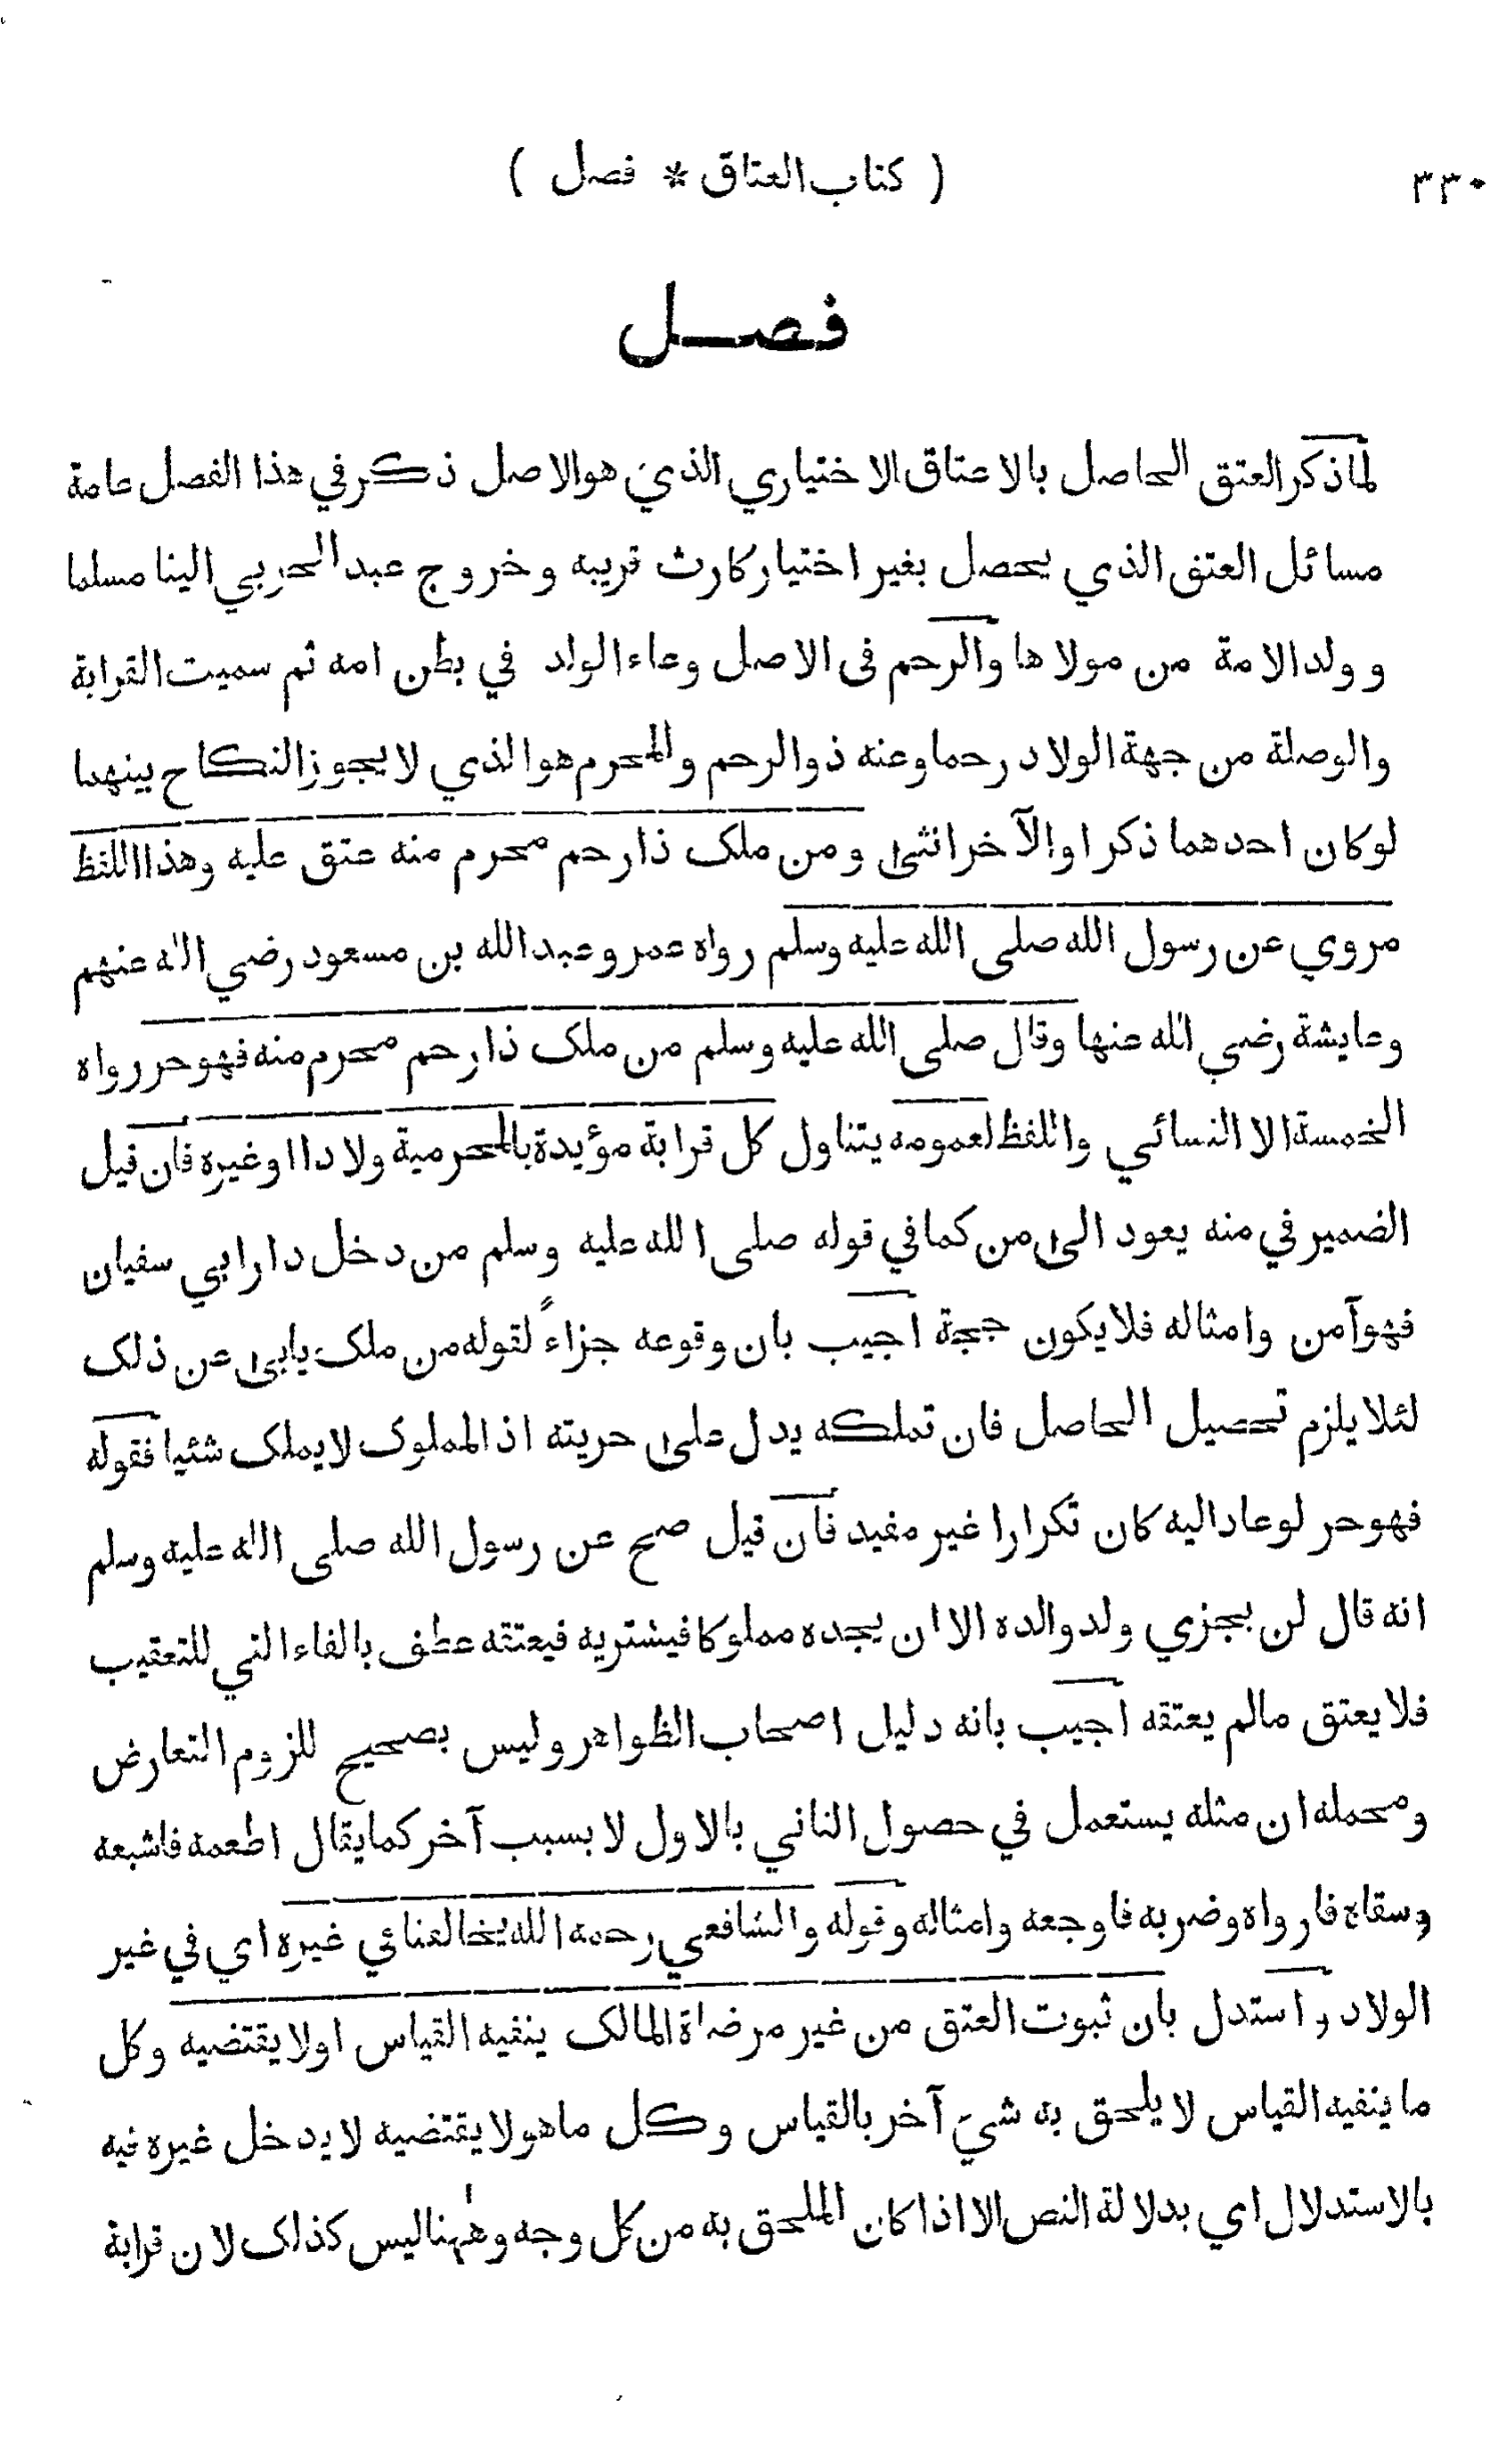 ٣٣٠
( كتاب العتاق * فصل )
فصل
لماذكر العتق الحاصل بالاعتاق الاختياري الذي هو الاصل ذكر في هذا الفصل عامة
مسائل العتق الذي يحصل بغير اختيار كارث قريبه و خروج عبد الحربي الينا مسلما
و ولد الامة من مولاها والرحم فى الاصل وعاء الولد في بطن امه ثم سميت القرابة
والوصلة من جهة الولاد رحما وعنه ذو الرحم والمحرم هو الذي لا يجوز النكاح بينهما
لوكان احدهما ذكرا والآخر انثى ومن ملك ذا رحم محرم منه عتق عليه وهذا اللفظ
مروي عن رسول الله صلى الله عليه وسلم رواه عمر وعبد الله بن مسعود رضي الله عنهم
وعايشة رضي الله عنها وقال صلى الله عليه وسلم من ملك ذا رحم محرم منه فهو حر رواه
الخمسة الا النسائي واللفظ لعمومه يتناول كل قرابة مؤيدة بالمحرمية ولادا اوغيره فان قيل
الضمير في منه يعود الى من كما في قوله صلى الله عليه وسلم من دخل دار ابي سفيان
فهو آمن وامثاله فلا يكون حجة اجيب بان وقوعه جزاءً لقوله من ملك يابى عن ذلك
لئلا يلزم تحصيل الحاصل فان تملكه يدل على حريته اذ المملوك لا يملك شئيا فقوله
فهو حر لوعاد اليه كان تكرارا غير مفيد فان قيل صح عن رسول الله صلى الله عليه وسلم
انه قال لن يجزي ولد والده الا ان يجده مملوكا فيشتريه فيعتقه عطف بالفاء التي للتعقيب
فلا يعتق مالم يعتقه اجيب بانه دليل اصحاب الظواهر وليس بصحيح للزوم التعارض
ومحمله ان مثله يستعمل في حصول الثاني بالاول لا بسبب آخر كما يقال اطعمه فاشبعه
وسقاه فارواه وضربه فاوجعه وامثاله وقوله والشافعي رحمه الله يخالفنا في غيره اي في غير
الولاد واستدل بان ثبوت العتق من غير مرضاة المالك ينفيه القياس اولا يقتضيه وكل
ما ينفيه القياس لا يلحق به شيء آخر بالقياس وكل ماهو لا يقتضيه لا يدخل غيره فيه
بالاستدلال اي بدلالة النص الا اذا كان الملحق به من كل وجه وههنا ليس كذلك لان قرابة